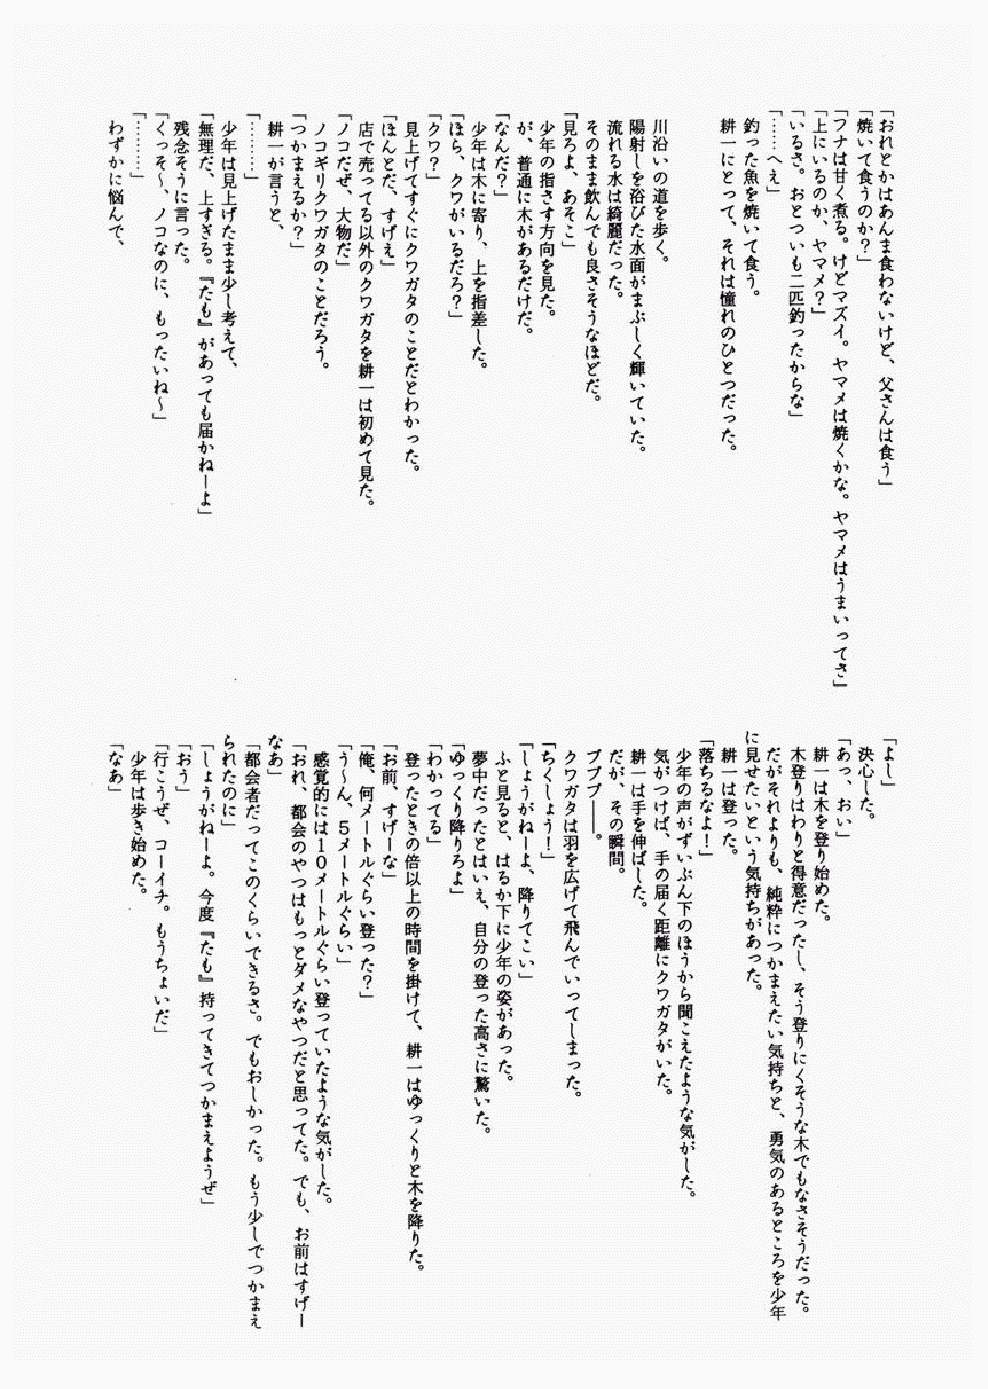 「おれとかはあんま食わないけど、父さんは食う」
「焼いて食うのか？」
「フナは甘く煮る。けどマズイ。ヤマメは焼くかな。ヤマメはうまいってさ」
「上にいるのか、ヤマメ？」
「いるさ。おとついも二匹釣ったからな」
「……へえ」
釣った魚を焼いて食う。
耕一にとって、それは憧れのひとつだった。
川沿いの道を歩く。
陽射しを浴びた水面がまぶしく輝いていた。
流れる水は綺麗だった。
そのまま飲んでも良さそうなほどだ。
「見ろよ、あそこ」
少年の指さす方向を見た。
が、普通に木があるだけだ。
「なんだ？」
少年は木に寄り、上を指差した。
「ほら、クワがいるだろ？」
「クワ？」
見上げてすぐにクワガタのことだとわかった。
「ほんとだ、すげぇ」
店で売ってる以外のクワガタを耕一は初めて見た。
「ノコだぜ、大物だ」
ノコギリクワガタのことだろう。
「つかまえるか？」
耕一が言うと、
「………」
少年は見上げたまま少し考えて、
「無理だ、上すぎる。『たも』があっても届かねーよ」
残念そうに言った。
「くっそ〜、ノコなのに、もったいね〜」
「………」
わずかに悩んで、
「よし」
決心した。
「あっ、おい」
耕一は木を登り始めた。
木登りはわりと得意だったし、そう登りにくそうな木でもなさそうだった。
だがそれよりも、純粋につかまえたい気持ちと、勇気のあるところを少年
に見せたいという気持ちがあった。
耕一は登った。
「落ちるなよ！」
少年の声がずいぶん下のほうから聞こえたような気がした。
気がつけば、手の届く距離にクワガタがいた。
耕一は手を伸ばした。
だが、その瞬間。
ブブブ――。
クワガタは羽を広げて飛んでいってしまった。
「ちくしょう！」
「しょうがねーよ、降りてこい」
ふと見ると、はるか下に少年の姿があった。
夢中だったとはいえ、自分の登った高さに驚いた。
「ゆっくり降りろよ」
「わかってる」
登ったときの倍以上の時間を掛けて、耕一はゆっくりと木を降りた。
「お前、すげーな」
「俺、何メートルぐらい登った？」
「う〜ん、５メートルぐらい」
感覚的には１０メートルぐらい登っていたような気がした。
「おれ、都会のやつはもっとダメなやつだと思ってた。でも、お前はすげー
なあ」
「都会者だってこのくらいできるさ。でもおしかった。もう少しでつかまえ
られたのに」
「しょうがねーよ。今度『たも』持ってきてつかまえようぜ」
「おう」
「行こうぜ、コーイチ。もうちょいだ」
少年は歩き始めた。
「なあ」